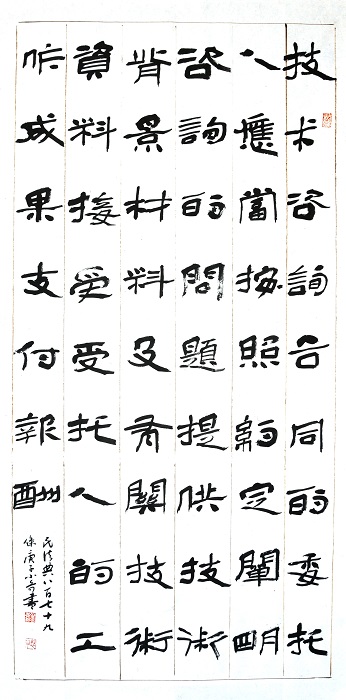 技术咨詢合同的委托
人應當按照約定闡明
咨詢的問題提供技術
背景材料及有關技術
資料接受受托人的工
作成果支付報酬
民法典八百七十九
條庚子小奇書